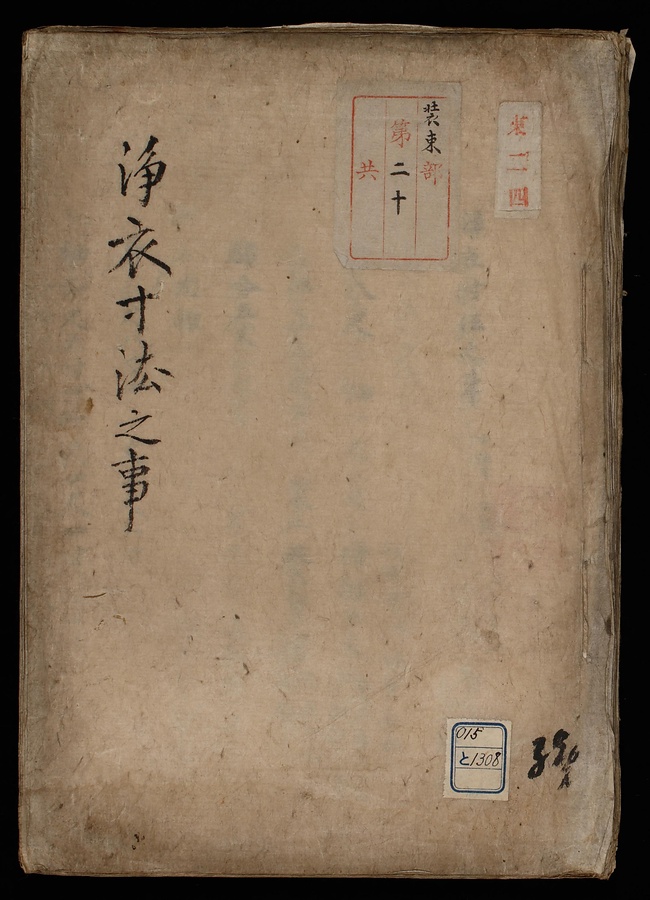 裝束部
第二十
共
四
浄衣寸法之事
015
と1308